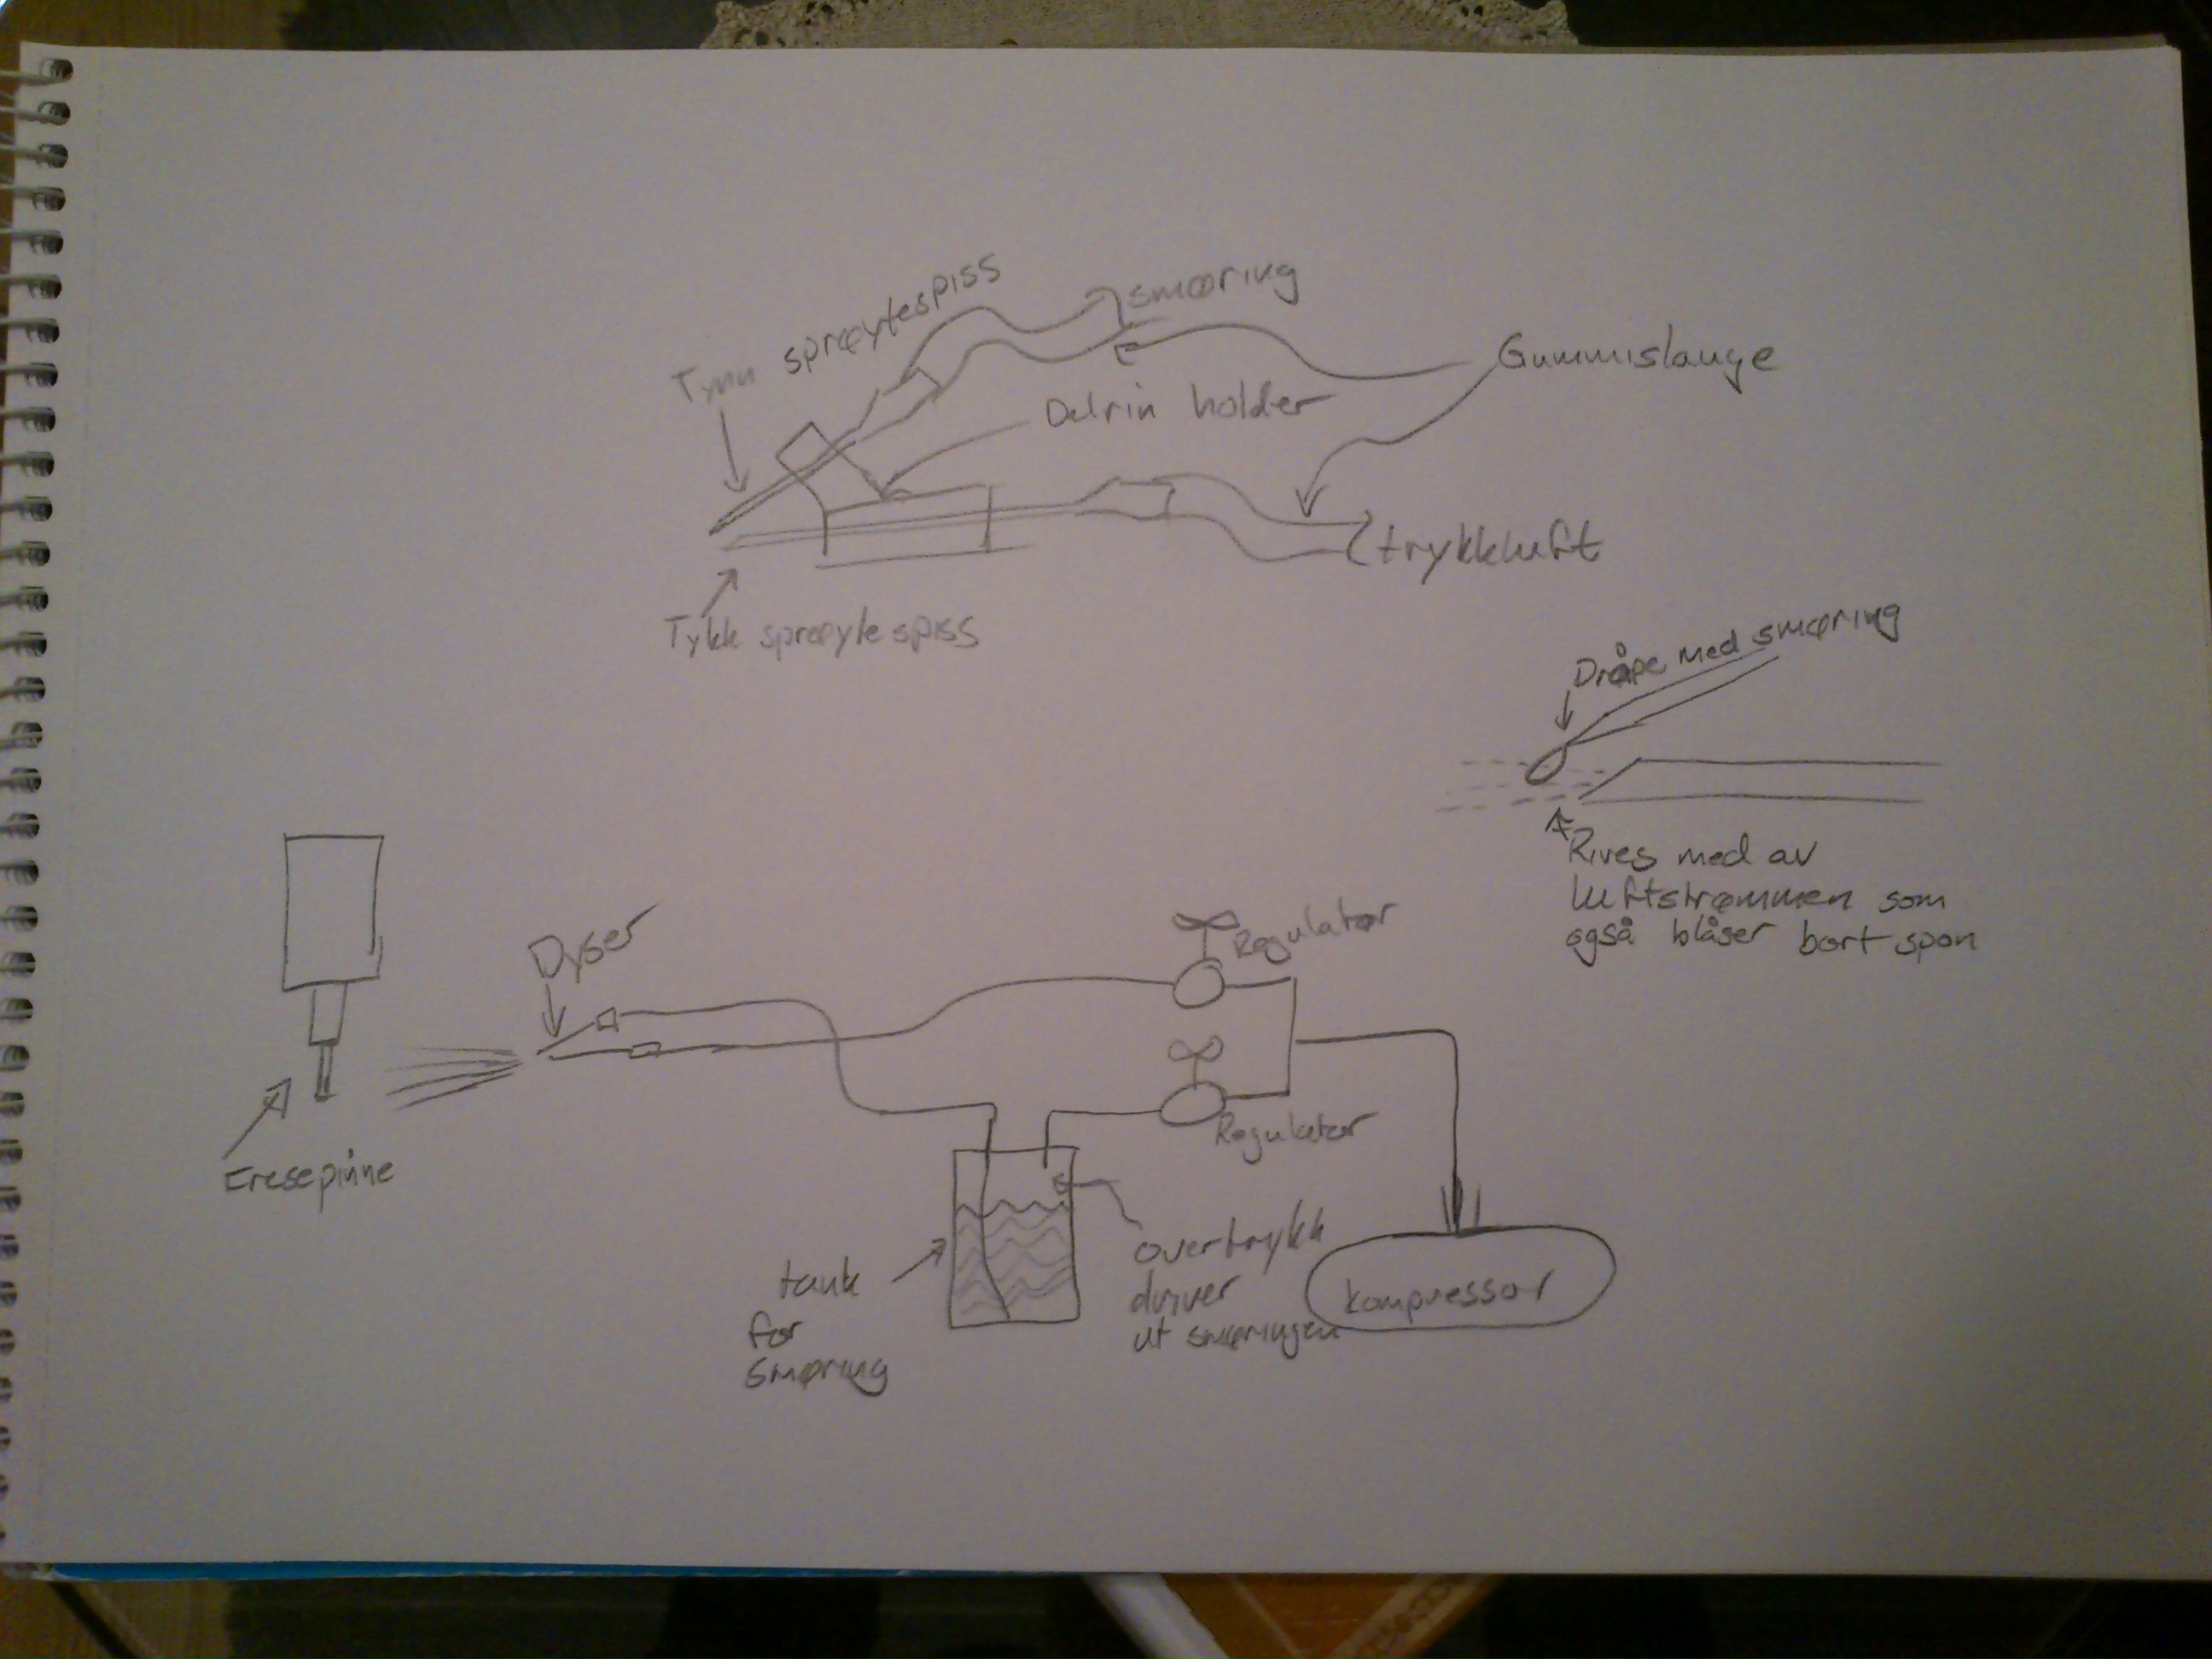 Tynn sprøytespiss
smøring
Gummislange
Delrin holder
trykkluft
Tykk sprøytespiss
Dråpe med smøring
Rives med av
luftstrømmen som
også blåser bort spon
Dyser
Regulator
Regulator
Fresepinne
tank
for
smøring
overtrykk
driver
ut smøringen
kompressor